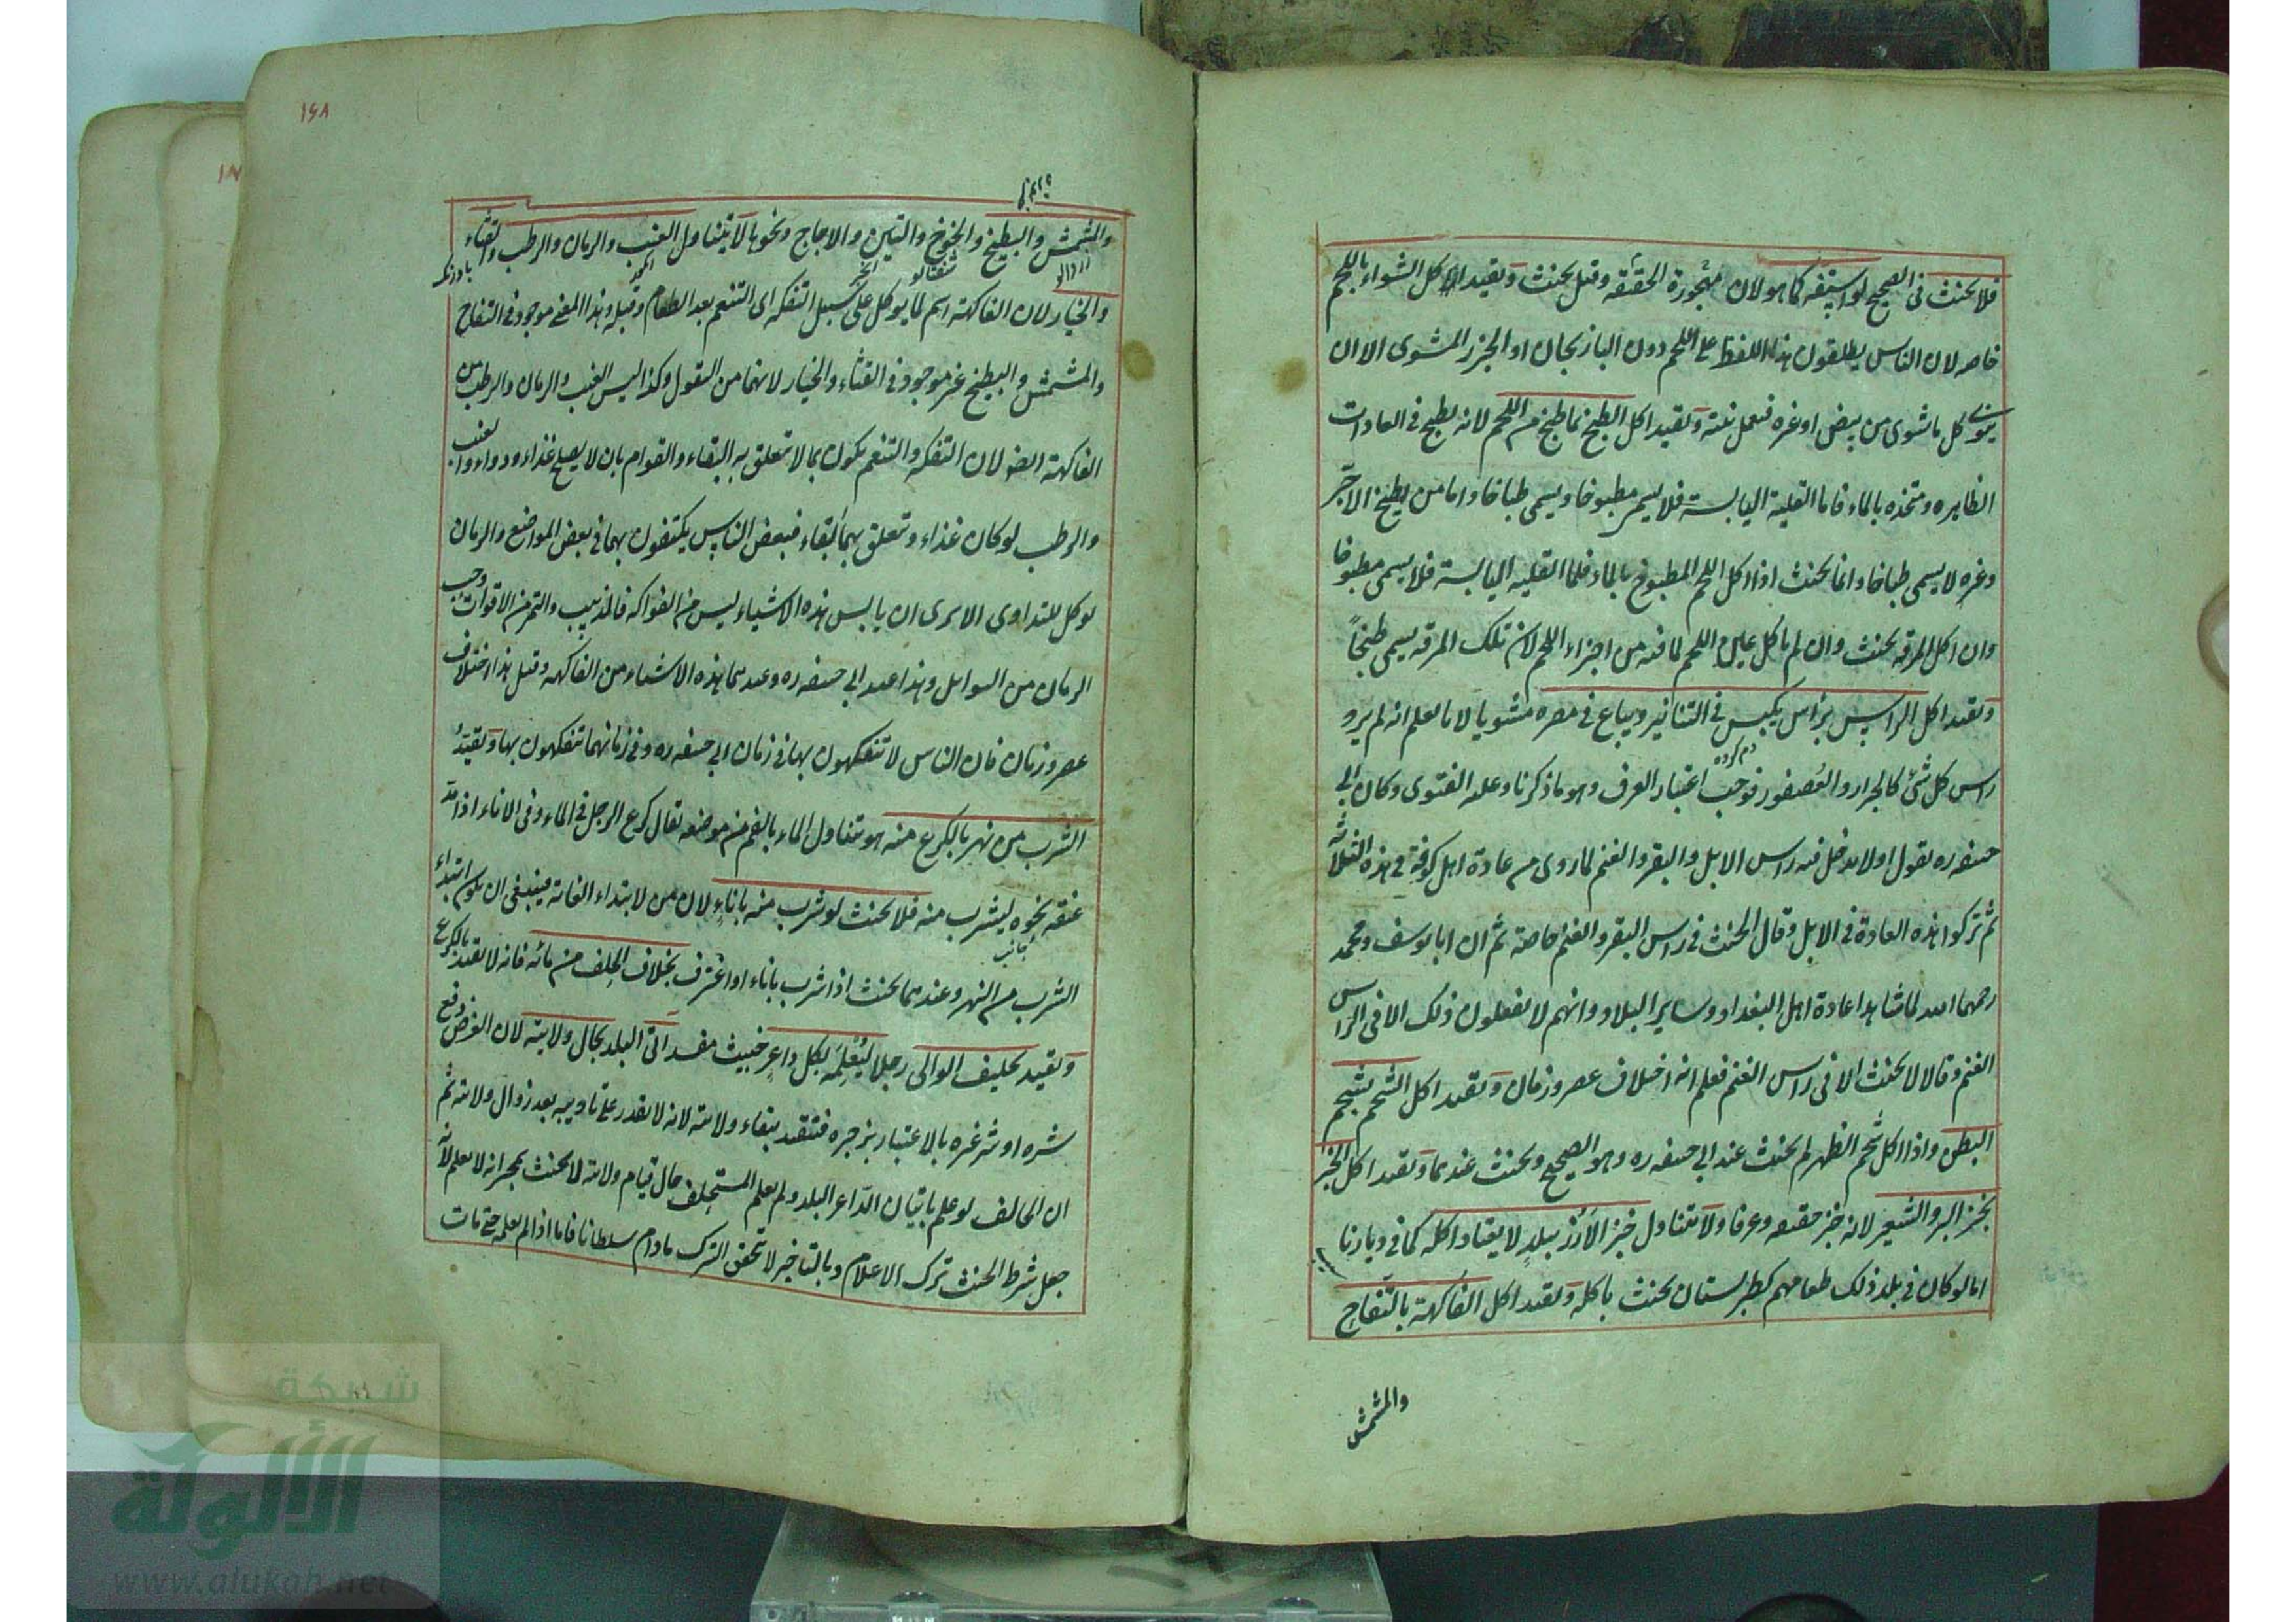 فلا يحنث في الصحيح لو استفه كما هو لان مهجورة الحقيقة وقيل يحنث وتقيد اكل الشواء باللحم
خاصه لان الناس يطلقون هذا اللفظ على اللحم دون الباذنجان او الجزر المشوى الا ان
ينوى كل ما شوى من بيض او غيره فتعمل نيته وتقيد اكل الطبخ بما طبخ من اللحم لانه يطبخ في العادات
الظاهره ومتخذه بالماء فاما القلية اليابسة فلا يسمى مطبوخا ويسمى طباخا واما من يطبخ الآجر
وغيره لا يسمى طباخا وانما يحنث اذا اكل اللحم المطبوخ بالماء فاما القليه اليابسة فلا يسمى مطبوخا
وان اكل المرقه يحنث وان لم ياكل عين اللحم لما فيه من اجزاء اللحم لان تلك المرقه يسمى طبخاً
وتقيد اكل الراس برأس يكبس في التنانير ويباع في مصره مشويا لانا نعلم انه لم يرد
راس كل شئ كالجراد والعصفور فوجب اعتبار العرف وهو ما ذكرنا وعليه الفتوى وكان ابى
حنيفه ره يقول اولا يدخل فيه راس الابل والبقر والغنم لما روى من عادة اهل كوفة في هذه الثلاثة
ثم تركوا هذه العادة في الابل وقال الحنث في راس البقر والغنم خاصة ثم ان ابا يوسف ومحمد
رحمهما الله لما شاهدا عادة اهل البغداد وساير البلاد وانهم لا يفعلون ذلك الا في الراس
الغنم وقالا لا يحنث الا في راس الغنم فعلم انه اختلاف عصر وزمان وتقيد اكل الشحم بشحم
البطن واذا اكل شحم الظهر لم يحنث عند ابي حنيفه ره وهو الصحيح ويحنث عندهما وتقيد اكل الخبز
بخبز البر والشعير لانه خبز حقيقه وعرفا ولا يتناول خبز الأرز ببلد لا يعتاد اكله كما في ديارنا
اما لو كان في بلد ذلك طعامهم كطبرستان يحنث باكله وتقيد اكل الفاكهة بالتفاح
والمشمش
١٤٨
والمشمش والبطيخ والخوخ والتين والاجاج ونحوها لا يتناول العنب والرمان والرطب والقثاء
شفتالو
والخيار لان الفاكهة اسم لما يوكل على سبيل التفكه اى التنعم بعد الطعام وقبله وهذا المعنى موجود في التفاح
والمشمش والبطيخ غير موجود في القثاء والخيار لانهما من البقول وكذا ليس العنب والرمان والرطب من
الفاكهة ايضا لان التفكه والتنعم يكون بما لا يتعلق به البقاء والقوام بان لا يصلح غذاء ودواء والعنب
والرطب لو كان غذاء وتعلق بهما البقاء فبعض الناس يكتفون بهما في بعض المواضع والرمان
يوكل للتداوى الا يرى ان يابس هذه الاشياء ليس من الفواكه فالزبيب والتمر من الاقوات وحب
الرمان من التوابل وهذا عند ابي حنيفه ره وعندهما هذه الاشياء من الفاكهه وقيل هذا اختلاف
عصر وزمان فان الناس لا يتفكهون بها في زمان ابي حنيفه ره وفي زمانهما يتفكهون بها وتقيد
الشرب من نهر بالكرع منه هو تناول الماء بالفم من موضعه يقال كرع الرجل في الماء وفي الاناء اذا مد
عنقه نحوه ليشرب منه فلا يحنث لو شرب منه باناء لان من لابتداء الغاية فينبغي ان يكون ابتداء
الشرب من النهر وعندهما يحنث اذا شرب باناء او اغترف بخلاف الحلف من مائه فانه لا يقيد بالكرع
وتقيد تحليف الوالى رجلا ليعلمه بكل داعر خبيث مفسد اتى البلد بحال ولايته لان الغرض دفع
شره او شر غيره بالاعتبار بزجره فتقيد ببقاء ولايته لانه لا يقدر على تاديبه بعد زوال ولايته ثم
ان الحالف لو علم باتيان الداعر البلد ولم يعلم المستحلف حال قيام ولايته لا يحنث بمجرد انه لا يعلم لانه
جعل شرط الحنث ترك الاعلام وبالتاخير لا تحقق الترك ما دام سلطانا فاما اذا لم يعلمه حتى مات
شبكة
الألوكة
www.alukah.net